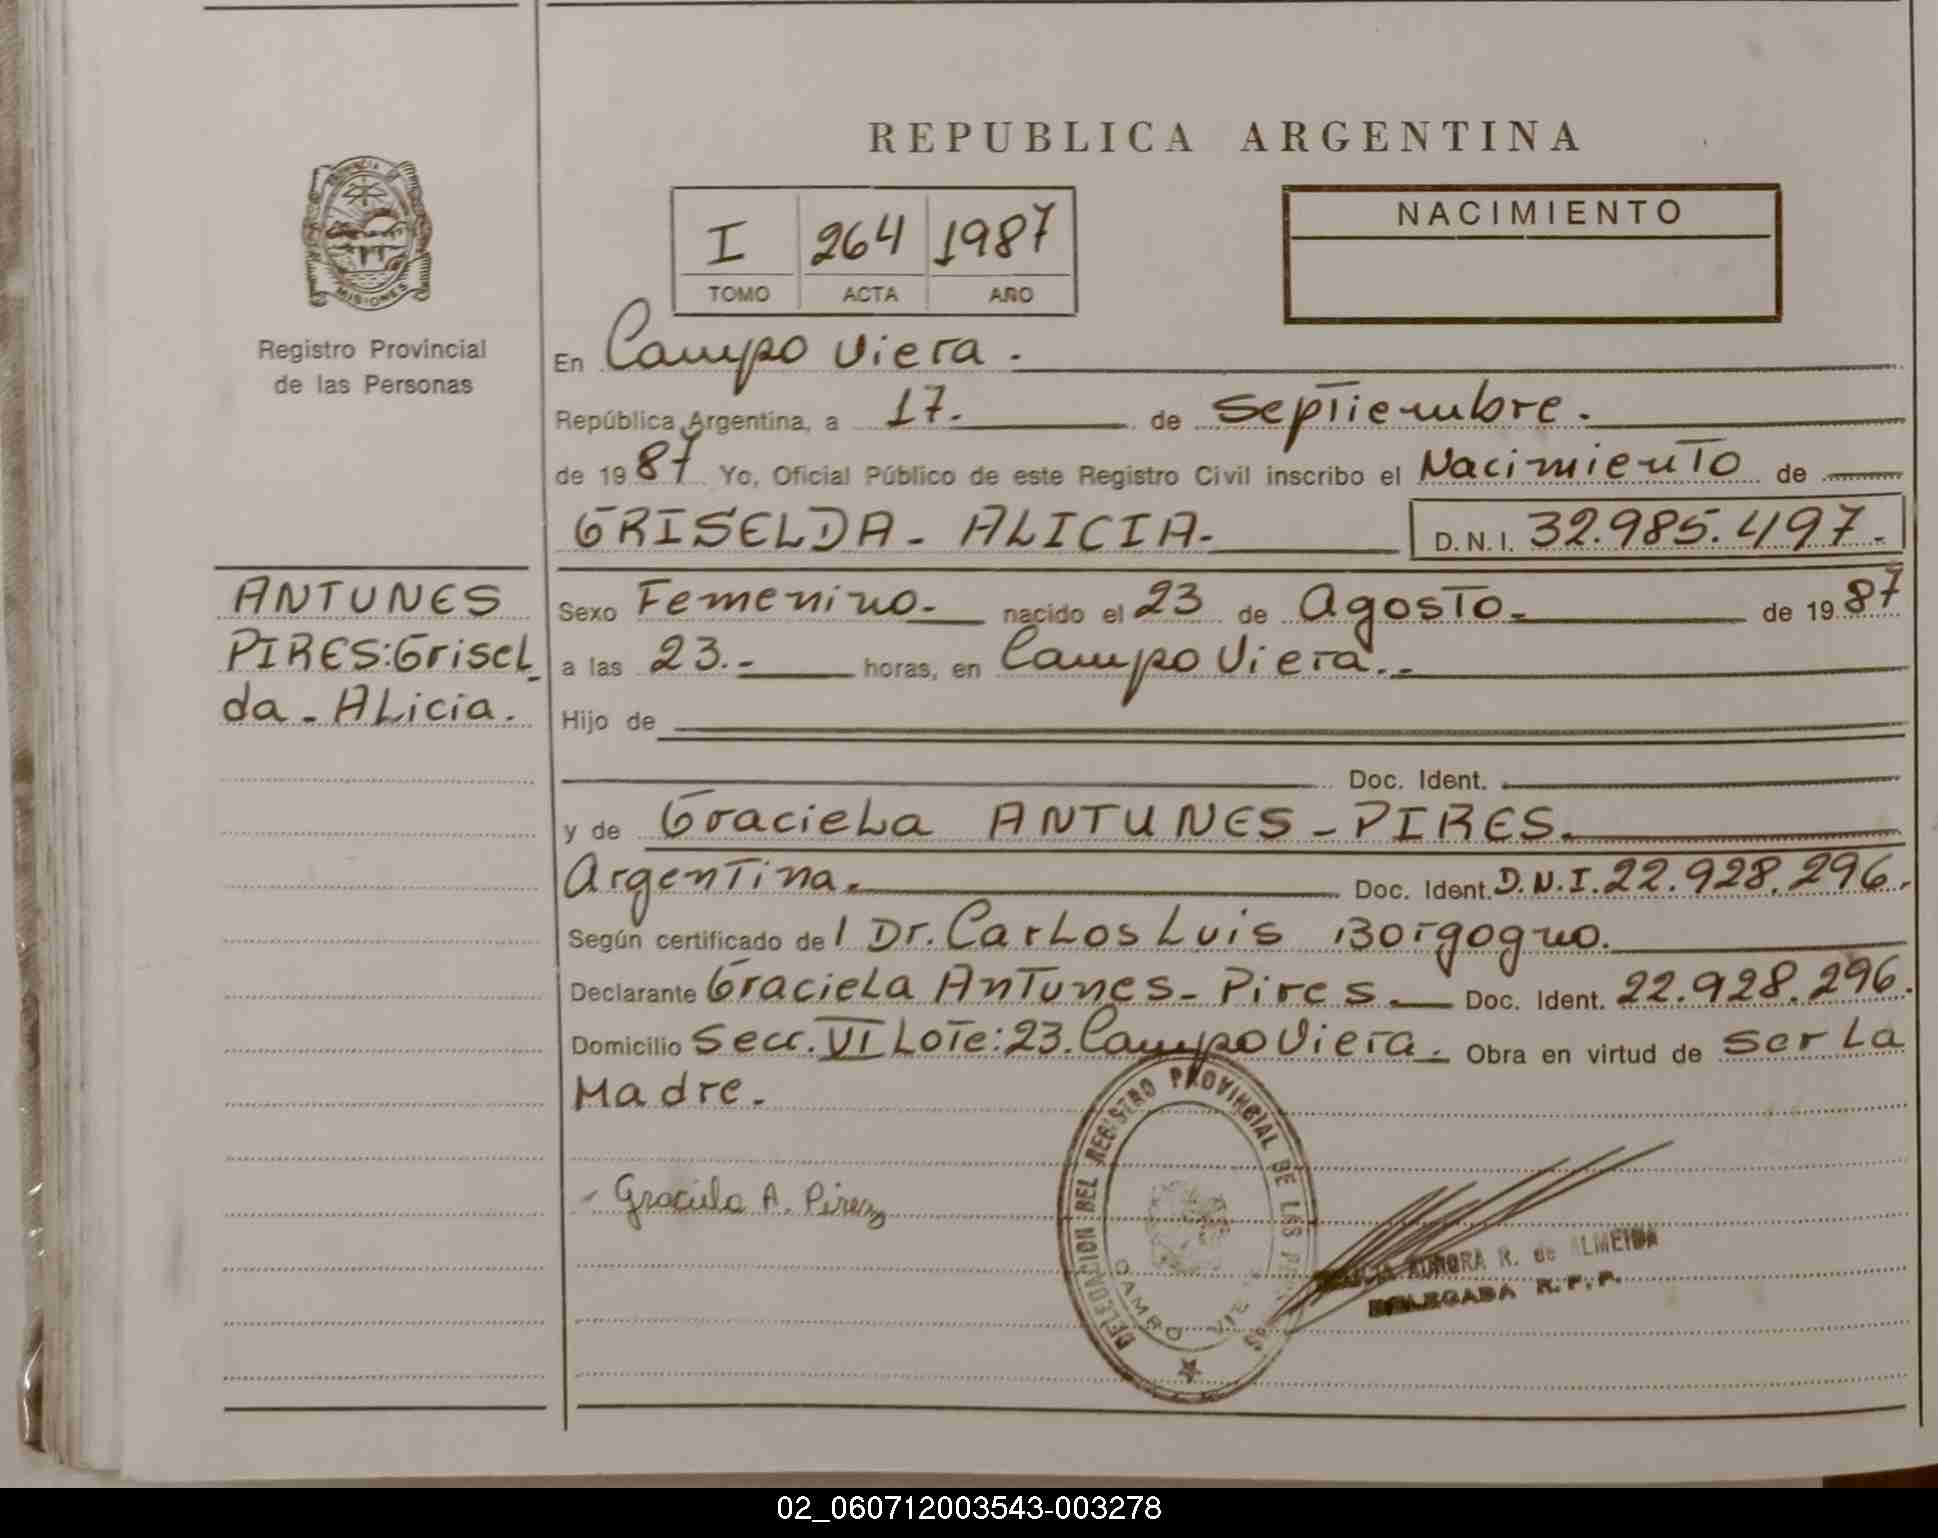 REPUBLICA ARGENTINA
PROVINCIA
MISIONES
Registro Provincial
de las Personas
I 264 1987
TOMO ACTA AÑO
NACIMIENTO
En Campo Viera.
República Argentina, a 17. de Septiembre.
de 19 87 Yo, Oficial Público de este Registro Civil inscribo el Nacimiento de
GRISELDA - ALICIA- D.N.I. 32.985.497.-
ANTUNES
PIRES: Grisel_
da - ALicia.
Sexo Femenino.- nacido el 23 de Agosto.- de 19 87
a las 23.- horas, en Campo Viera.-
Hijo de
Doc. Ident.
y de GracieLa ANTUNES - PIRES.
Argentina. Doc. Ident. D.N.I. 22.928.296.
Según certificado de l Dr. CarLos Luis Borgogno.
Declarante GracieLa Antunes - Pires. Doc. Ident. 22.928.296.
Domicilio Secc. VI Lote: 23. Campo Viera. Obra en virtud de ser La
Madre.
Graciela A. Pirez
DELEGACION DEL REGISTRO PROVINCIAL DE LAS
CAMPO VIE
AURORA R. de ALMEIDA
DELEGADA R.P.P.
02_060712003543-003278